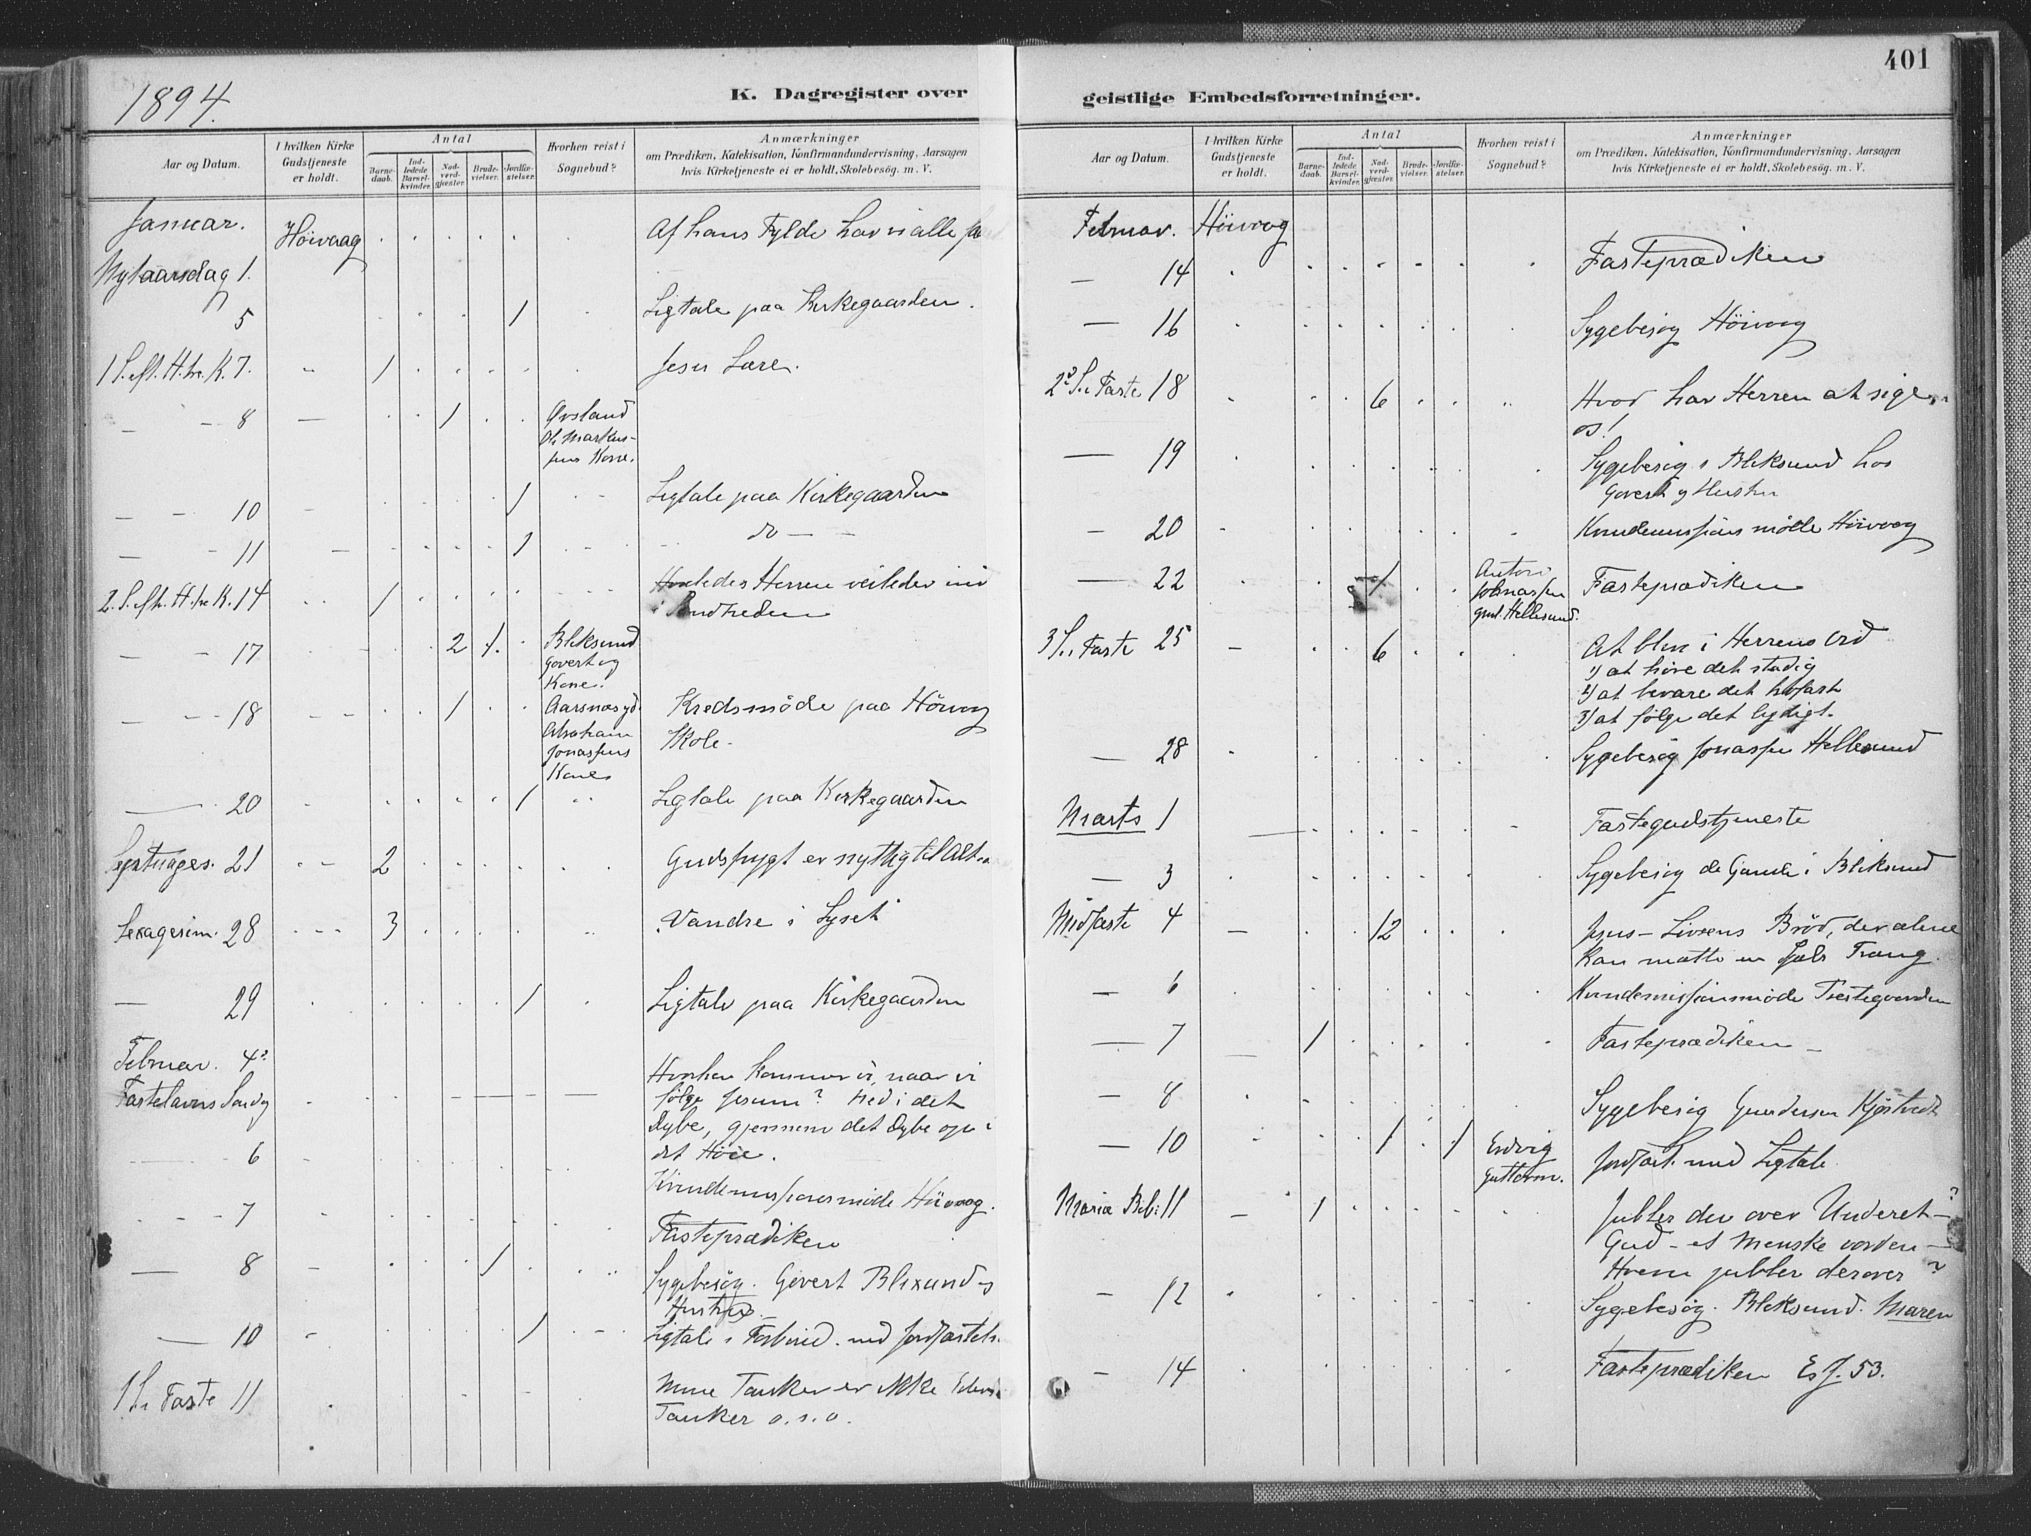 401
1894.
K. Dagregister over geistlige Embedsforretninger.
Aar og Datum.
I hvilken Kirke Gudstjeneste er holdt.
Antal
Barnedaab.
Indledede Barselkvinder.
Nadverdgjester.
Brudevielser.
Jordfæstelser.
Hvorhen reist i Sognebud?
Anmærkninger
om Prædiken, Katekisation, Konfirmandundervisning, Aarsagen
hvis Kirketjeneste ei er holdt, Skolebesög m. V.
Januar. Höivaag
Nytaarsdag 1. Af hans Fylde har vi alle
5 1 Ligtale paa Kirkegaarden.
1 S. eft. H. tre K. 7. 1 Jesu Lære.
8 1 Øvsland Ol. Markussens Kone.
10 1 Ligtale paa Kirkegaarden
11 1 do
2. S. eft. H. tre K. 14 1 Herren veileder ind
i Sandheden
17 2 1. Bliksund Govert og Kone.
18 1 Abraham Jonassens Kone Kredsmöde paa Hövaag
Skole.
20 1 Ligtale paa Kirkegaarden
Septuages. 21 2 Gudsfrygt er nyttig til Alt
Sexagesim. 28 3 Vandre i Lyset
29 1 Ligtale paa Kirkegaarden
Februar. 4
Fastelavns Hvorhen kommer vi, naar vi
fölge Jesum? Ned i det
Dybe, gjennem det Dybe op i
det Höie.
6 Kvindemissionsmöde Hövaag.
7 Fasteprædiken
8 1 Sygebesög. Govert Blixund
Hustru
10 1 Ligtale i Forbind. med Jordfæstels.
1 S. i Faste 11 Mine Tanker er ikke Eders
Tanker o.s.v.
Aar og Datum.
I hvilken Kirke Gudstjeneste er holdt.
Antal
Barnedaab.
Indledede Barselkvinder.
Nadverdgjester.
Brudevielser.
Jordfæstelser.
Hvorhen reist i Sognebud?
Anmærkninger
om Prædiken, Katekisation, Konfirmandundervisning, Aarsagen
hvis Kirketjeneste ei er holdt, Skolebesög m. V.
Februar. Höivaag
14 Fasteprædiken
16 Sygebesög Höivaag
2 S. i Faste 18 6 Hvad har Herren at sige
os!
19 Sygebesög i Bliksund hos
Govert og Hustru
20 Kvindemissions möde Höivaag
22 1 Hellesund. Fasteprædiken
3 S. i Faste 25 6 At blive i Herrens Ord
1) at höre det stadig
2) at bevare det
3) at fölge det lydigt.
28 Sygebesög Jonassen Hellesund
Marts 1 Fastegudstjeneste
3 Sygebesög de Gamle i Bliksund
Midfaste 4 12 Jesus - Livsens Bröd, der alene
kan mætte en Sjæls Trang.
6 Kvindemissionsmöde Prestegaarden
7 1 Fasteprædiken
8 Sygebesög Gundersen
10 1 1 Guttorm. Jordfæst. med Ligtale
Mariæ Beb. 11 1 Jubler du over Underet -
Gud - et Menske vorden -
Hvem jubler derover?
12 Sygebesög. Bliksund. Maren
14 Fasteprædiken Es. 53.